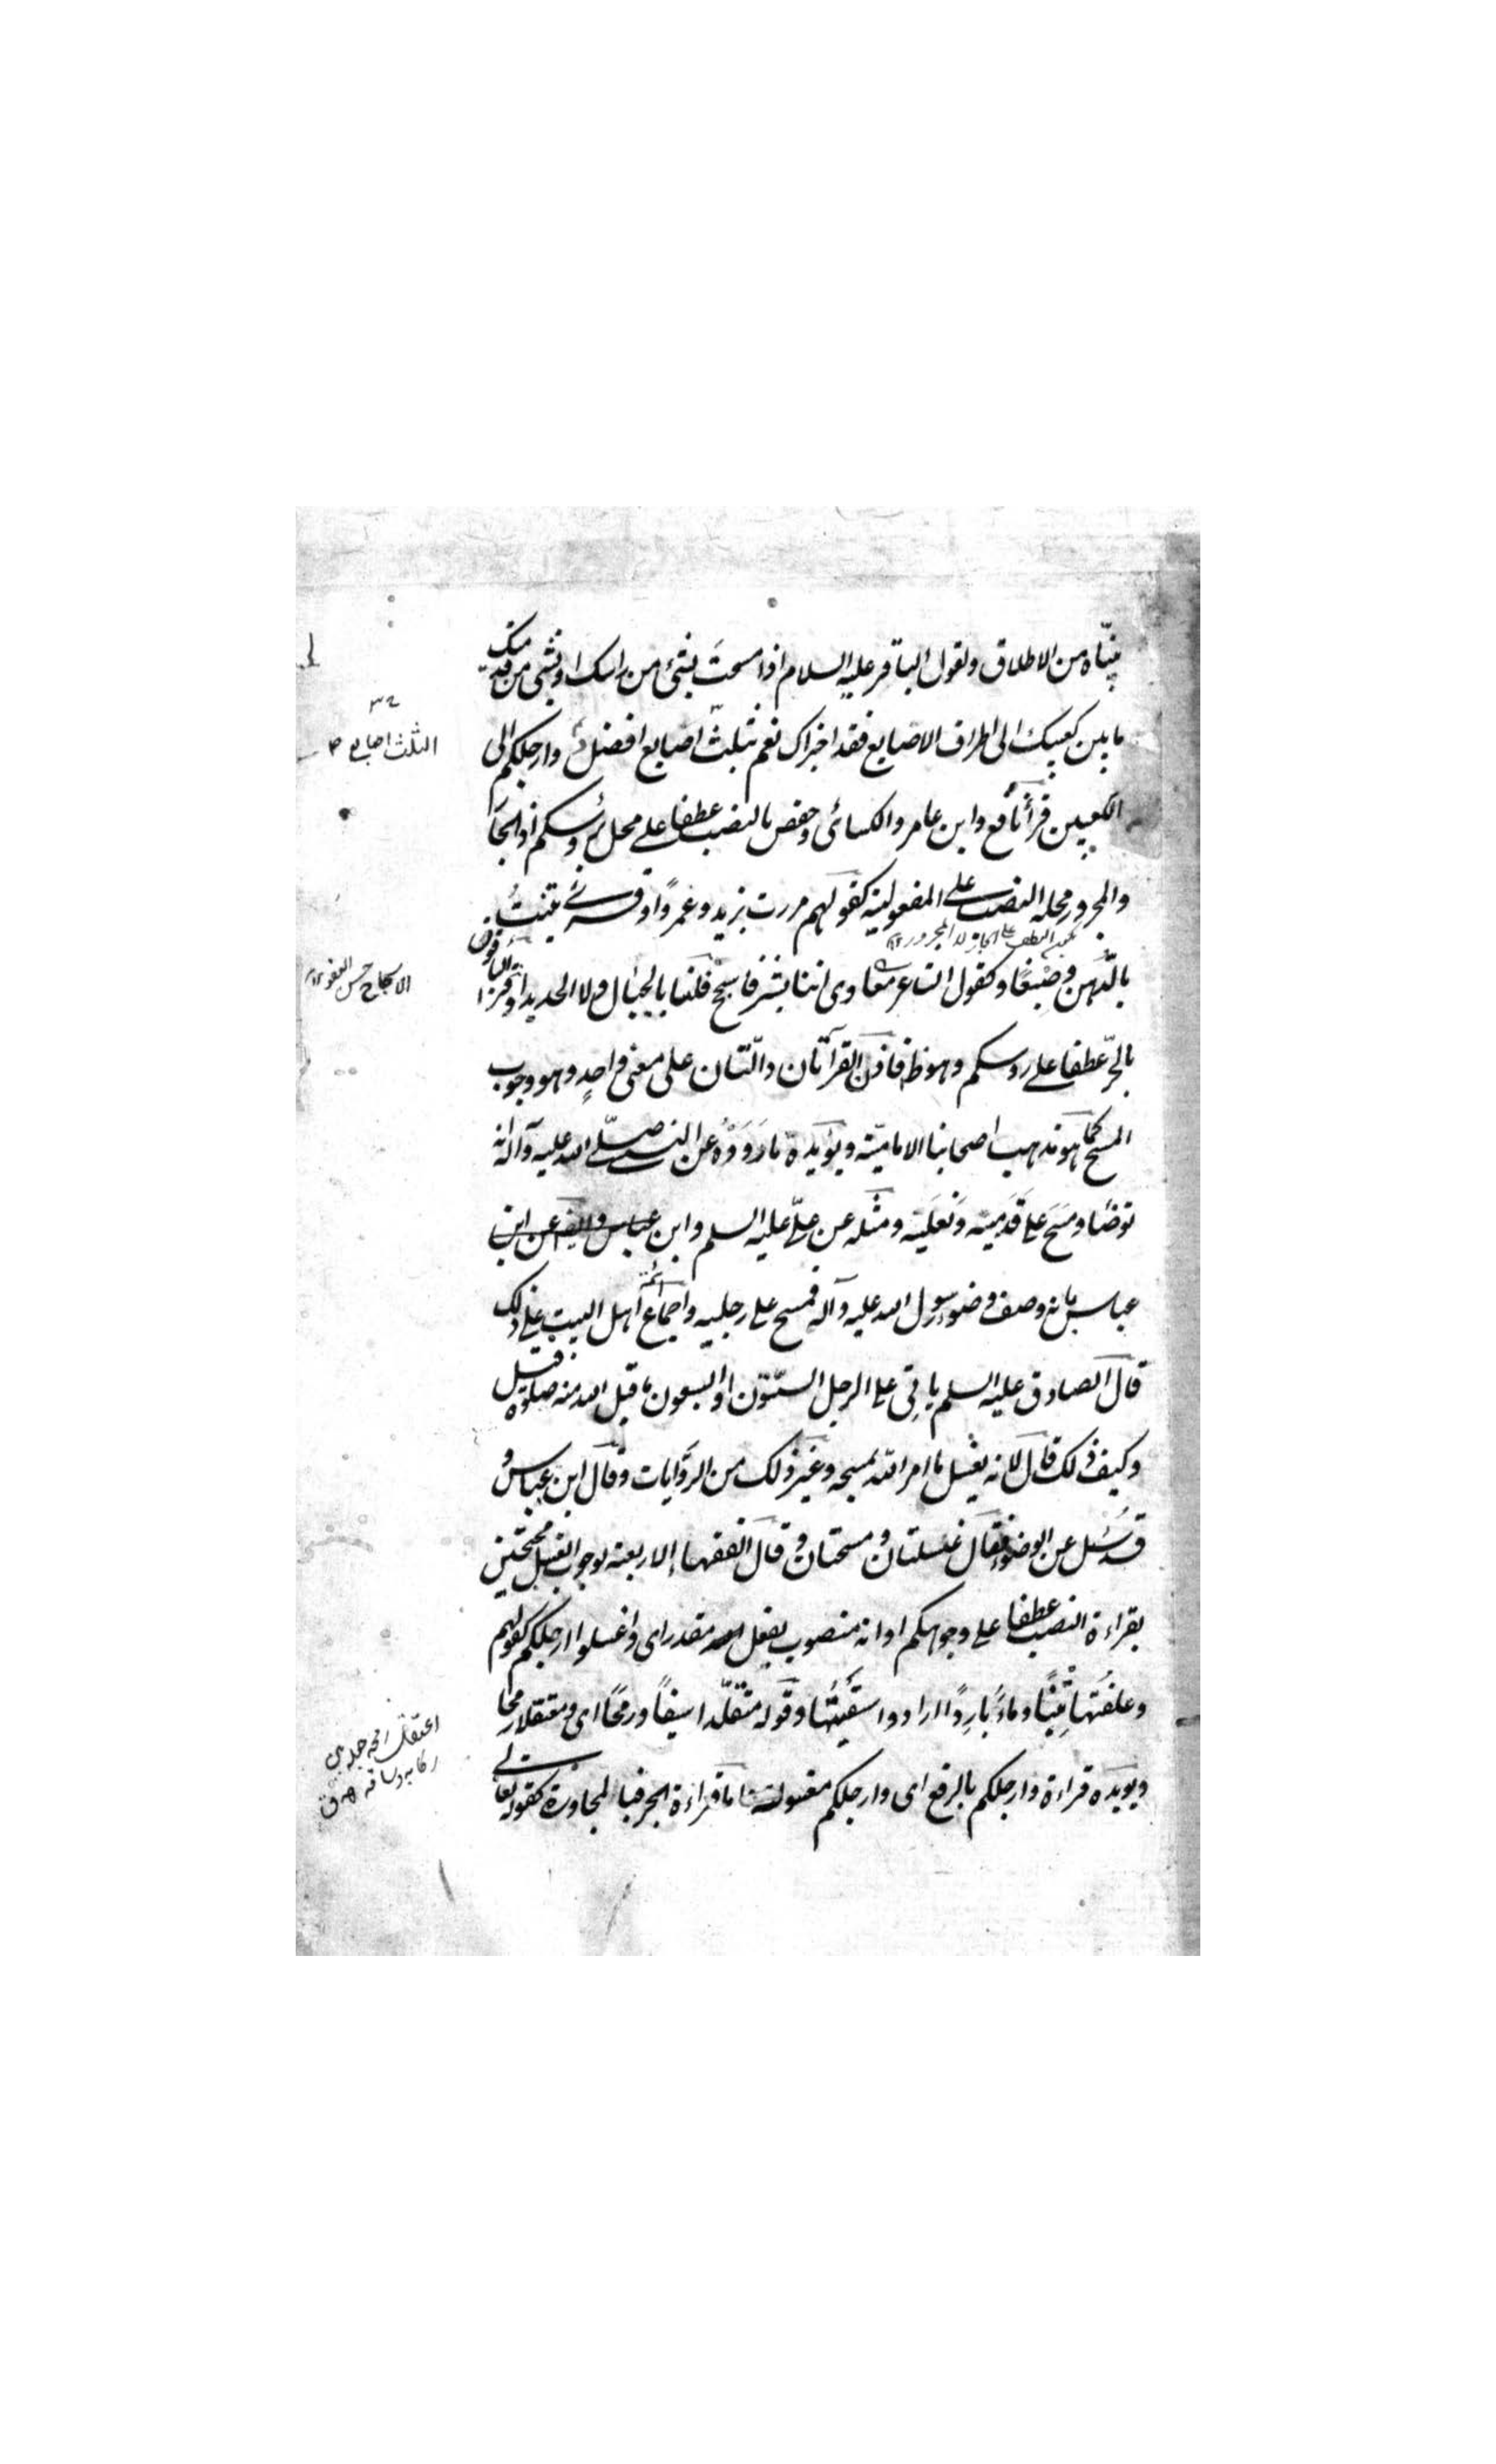 بيّناه من الاطلاق ولقول الباقر عليه السلام اذا مسحت بشئ من راسك او بشئ من قدميك
ما بين كعبيك الى اطراف الاصابع فقد اجزاك نعم بثلث اصابع افضل وارجلكم الى
الكعبين قرأ نافع وابن عامر والكسائى وحفص بالنصب عطفا على محل برؤسكم اذ الجار
والمجرور محله النصب على المفعولية كقولهم مررت بزيد وعمرًا وقرئ تنبت
بالدّهن وصبغًا وكقول الشاعر معاوى اننا بشر فاسجح فلسنا بالجبال ولا الحديدا وقرأ الباقون
بالجرّ عطفا على روسكم وهو ظ فاذن القرآتان دالّتان على معنى واحدٍ وهو وجوب
المسح كما هو مذهب اصحابنا الاماميّة ويؤيده ما رَوَوْهُ عن النبى صلّى الله عليه وآله انه
توضأ ومسَحَ على قَدَمَيْه ونَعلَيْه ومثله عن علىّ عليه السلم وابن عباس وايضا عن ابن
عباس بانه وصف وضوء رسول الله عليه وآله فمسح على رجليه واجماع ائمة اهل البيت على ذلك
قال الصادق عليه السلم ياتى على الرجل الستّون او السبعون ما قبل الله منه صلوة قيل
وكيف ذلك قال لانه يغسل ما امر الله بمسحه وغير ذلك من الروايات وقال ابن عباس و
قد سُئل عن الوضوء فقال غسلتان ومسحتان وقال الفقهاء الاربعة بوجوب الغسل محتجّين
بقراءة النصب عطفا على وجوهكم او انه منصوب بفعل مقدر اى واغسلوا ارجلكم كقولهم
وعلفتُها تِبْنًا وماءً بارِدًا ارادوا سقَيْتُها وقوله متقلّدا سيفًا ورمحًا اى ومعتقلا رمحا
ويويده قراءة وارجلكم بالرفع اى وارجلكم مغسولة واما قراءة الجر فبالمجاورة كقوله تعالى
الثلث اصابع
الاسجاح حسن العفو
اعتقل رمحه جعله بين
ركابه وساقه ق